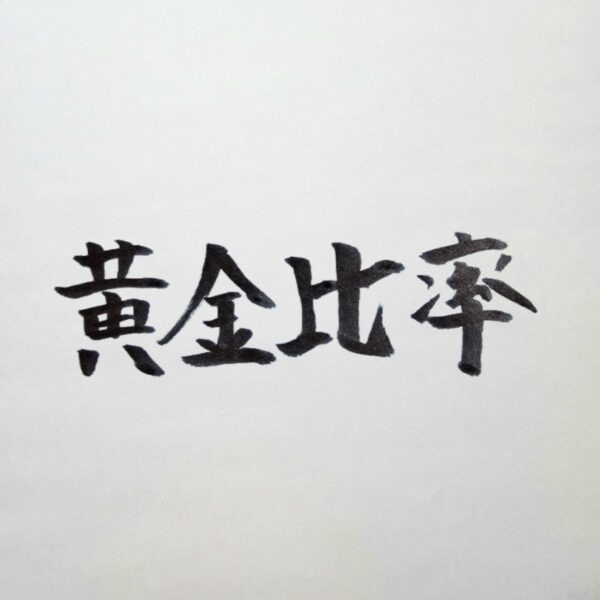 黄金比率